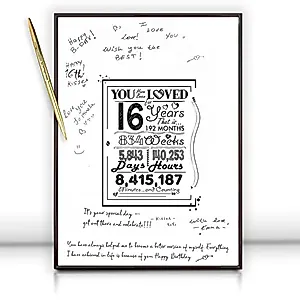 Happy
B-DAY!
I Love
Love! You
Wish you the
BEST!
HAPPY
16th
Love you
YOU LOVED
16 Years
That is...
192 MONTHS
834 Weeks
5,843 140,253
Days Hours
8,415,187
Minutes...and Counting
It's your special day —
get out there and celebrate!!!
with love
You have always helped me to become a better version of myself. Everything
I have achieved in life is because of you Happy Birthday